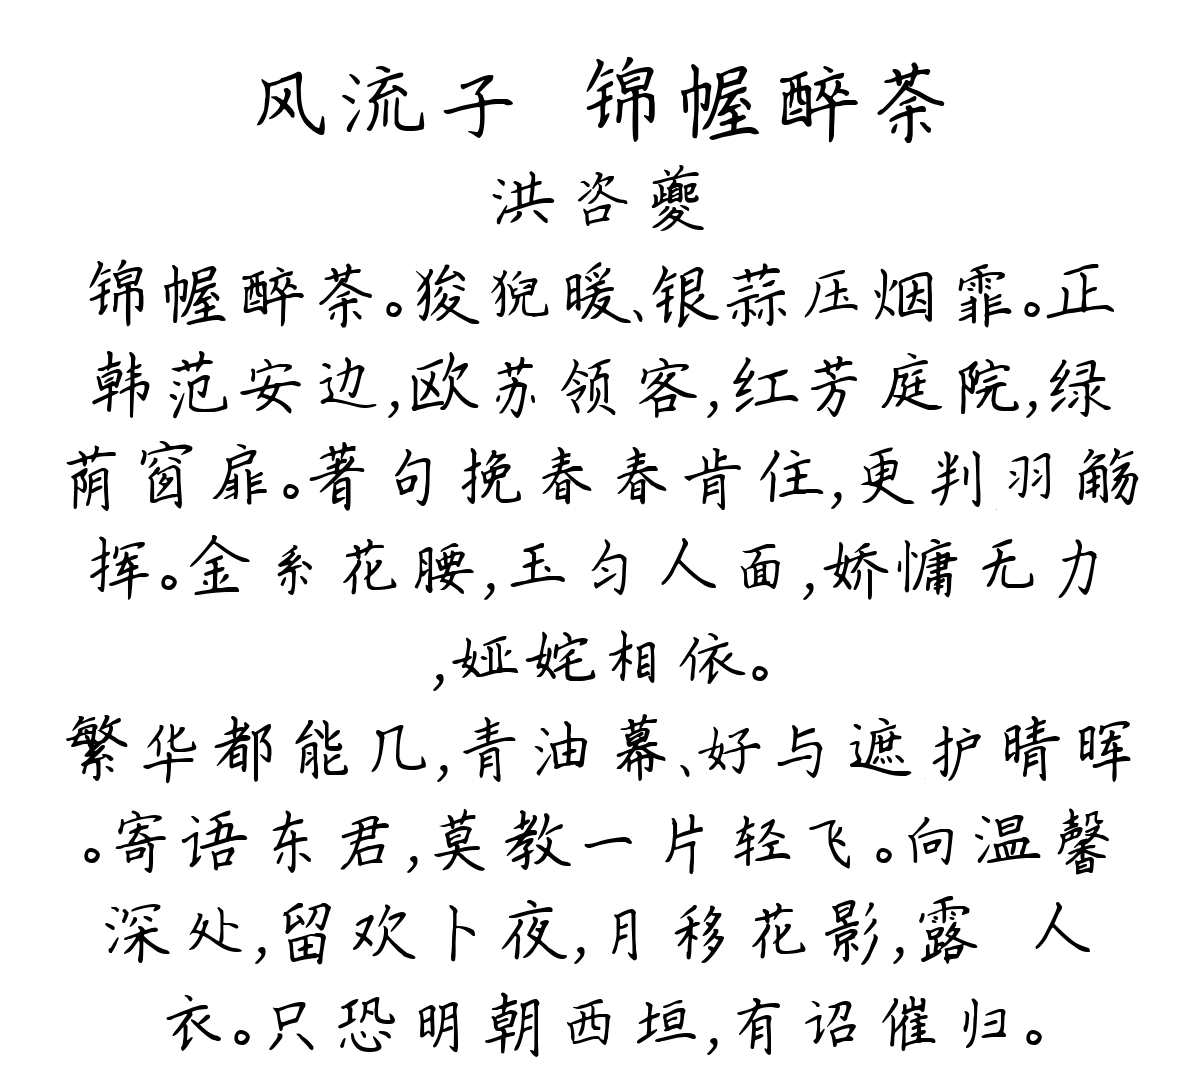 风流子 锦幄醉荼
洪咨夔
锦幄醉荼。狻猊暖、银蒜压烟霏。正
韩范安边,欧苏领客,红芳庭院,绿
荫窗扉。著句挽春春肯住,更判羽觞
挥。金系花腰,玉匀人面,娇慵无力
,娅姹相依。
繁华都能几,青油幕、好与遮护晴晖
。寄语东君,莫教一片轻飞。向温馨
深处,留欢卜夜,月移花影,露 人
衣。只恐明朝西垣,有诏催归。